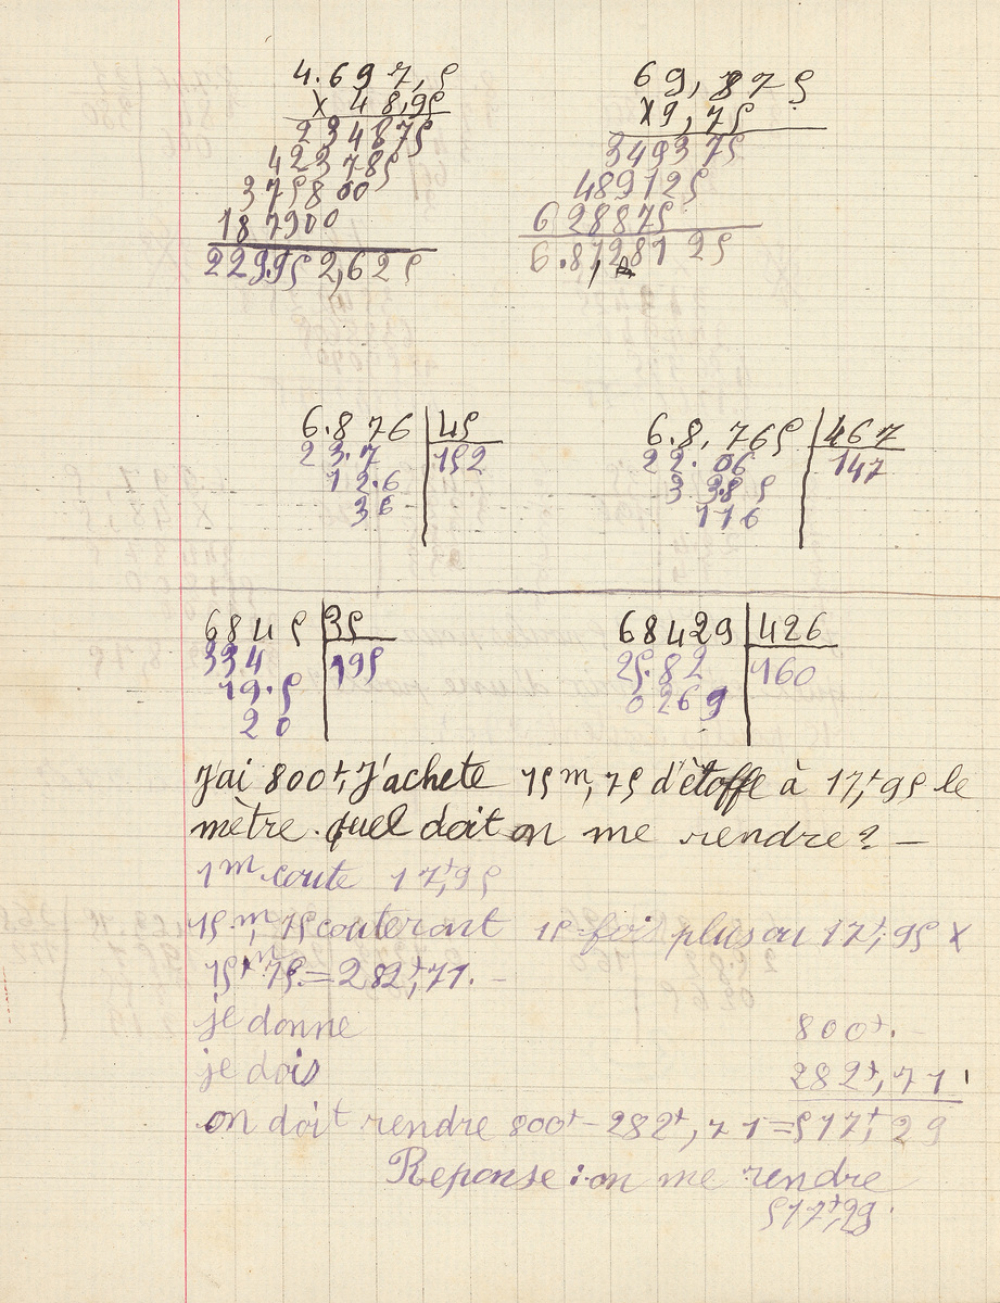 4.697,5
× 48,95
234875
423785
375800
187900
229952,625
69,875
×9,75
349375
489125
628875
6.8128125
6.876 45
23.7 152
12.6
36
6.8.765 467
22.06 147
3 38 5
116
6845 35
334 195
19.5
20
68429 426
25.82 160
0269
J'ai 800f, J'achete 15m,75 d'étoffe à 17,f95 le
mètre. quel doit on me rendre? —
1m coute 17,f95
15m,75 couteront 15 fois plus ou 17f,95 ×
15m75.=282f,71. -
je donne 800f.
je dois 282f,71
on doit rendre 800f-282f,71=517f,29
Reponse : on me rendre
517f,29.